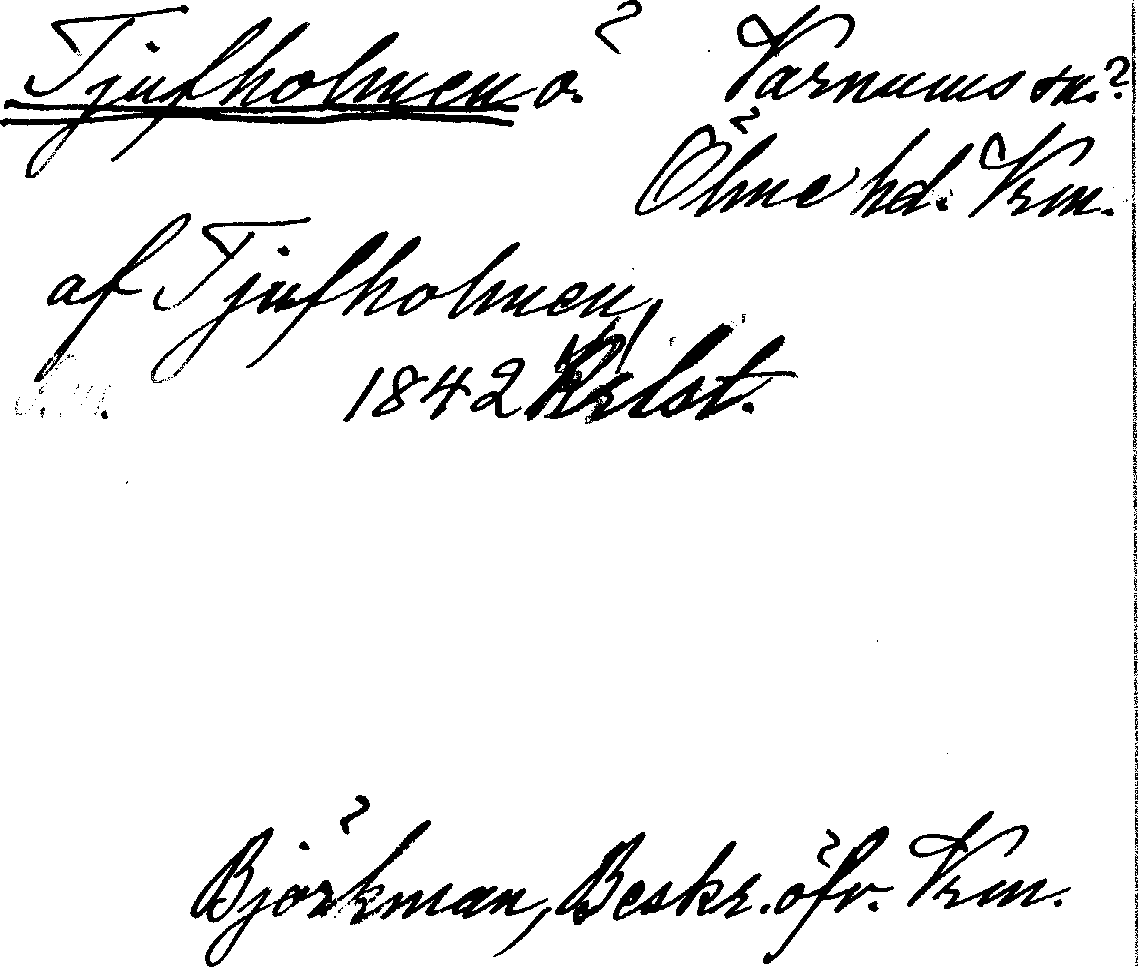 Tjufholmen ö. Varnums sn.?
Ölme hd. Vrm.
af Tjufholmen,
1842 Krlst.
Björkman, Beskr. öfv. Vrm.